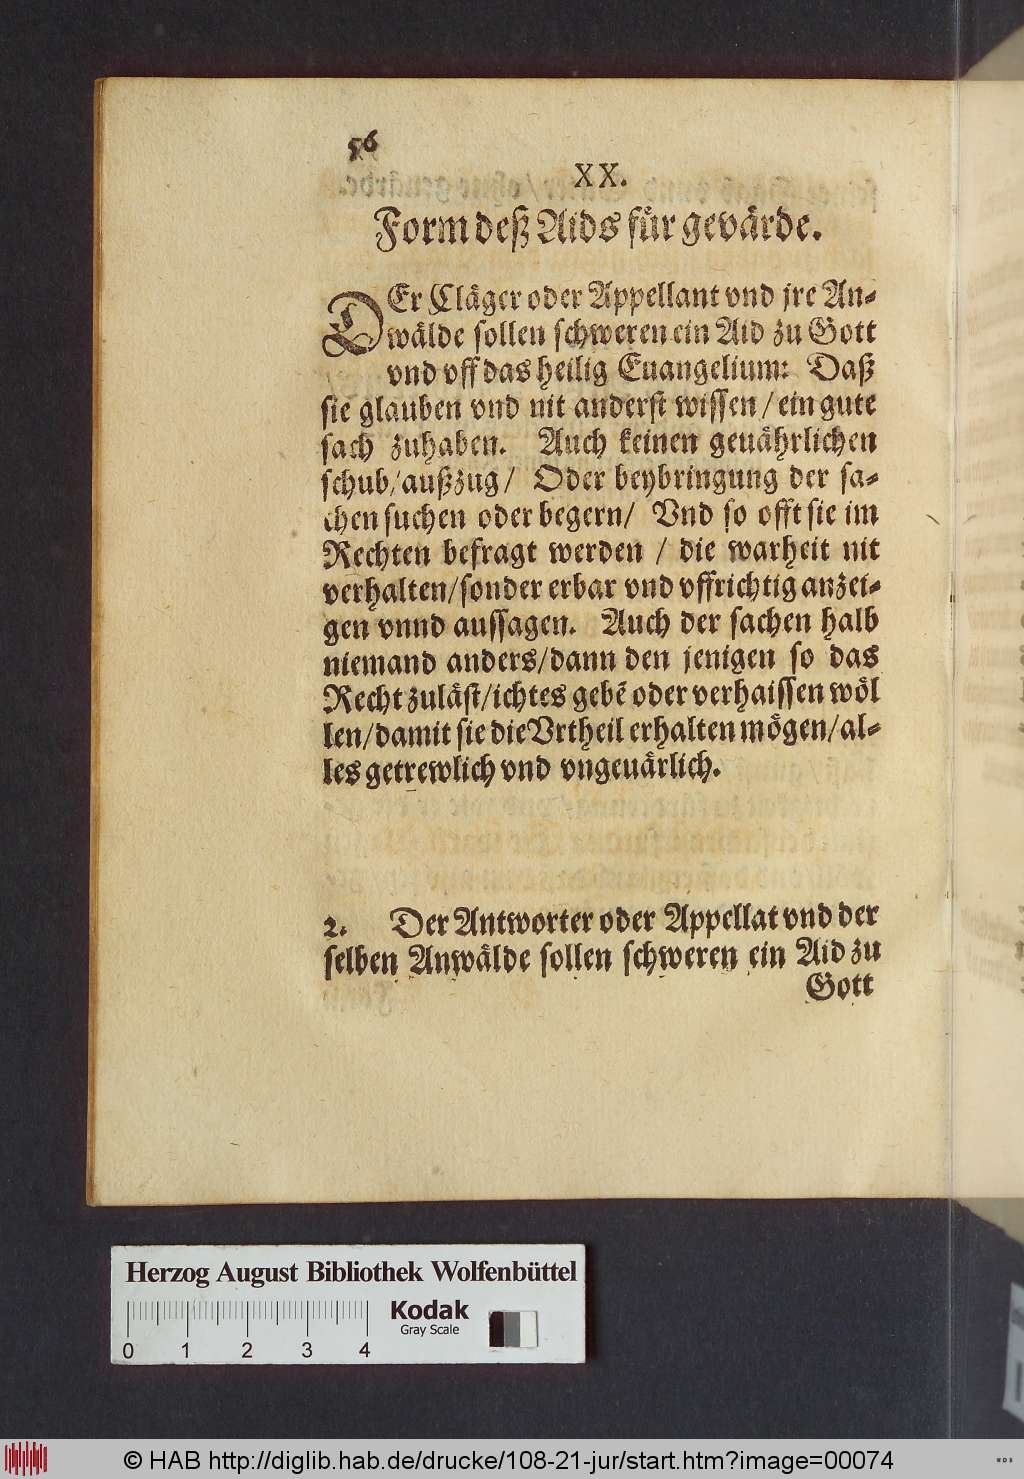 56
XX.
Form deß Aids für gevärde.
DEr Cläger oder Appellant vnd jre An-
wälde sollen schweren ein Aid zu Gott
vnd vff das heilig Euangelium: Daß
sie glauben vnd nit anderst wissen / ein gute
sach zuhaben. Auch keinen geuährlichen
schub / außzug / Oder beybringung der sa-
chen suchen oder begern / Vnd so offt sie im
Rechten befragt werden / die warheit nit
verhalten / sonder erbar vnd vffrichtig anzei-
gen vnnd aussagen. Auch der sachen halb
niemand anders / dann den jenigen so das
Recht zuläst / ichtes gebē oder verhaissen wöl
len / damit sie die Vrtheil erhalten mögen / al-
les getrewlich vnd vngeuärlich.
2. Der Antworter oder Appellat vnd der
selben Anwälde sollen schweren ein Aid zu
Gott
Herzog August Bibliothek Wolfenbüttel
Kodak
Gray Scale
0 1 2 3 4
© HAB http://diglib.hab.de/drucke/108-21-jur/start.htm?image=00074
WDB